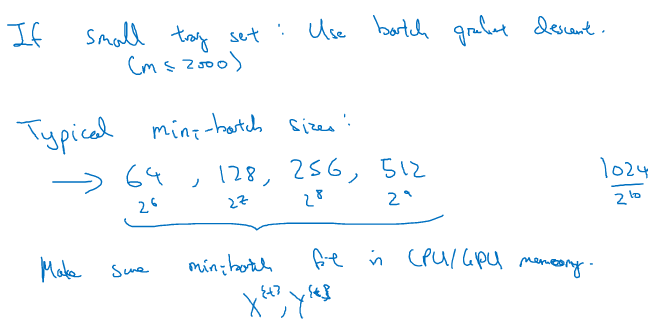 If small tray set : Use batch gradient descent.
(m ≤ 2000)
Typical mini-batch sizes:
→ 64 , 128, 256, 512 1024
2⁶ 2⁷ 2⁸ 2⁹ 2¹⁰
Make sure minibatch fit in CPU/GPU memory.
X^{t}, Y^{t}